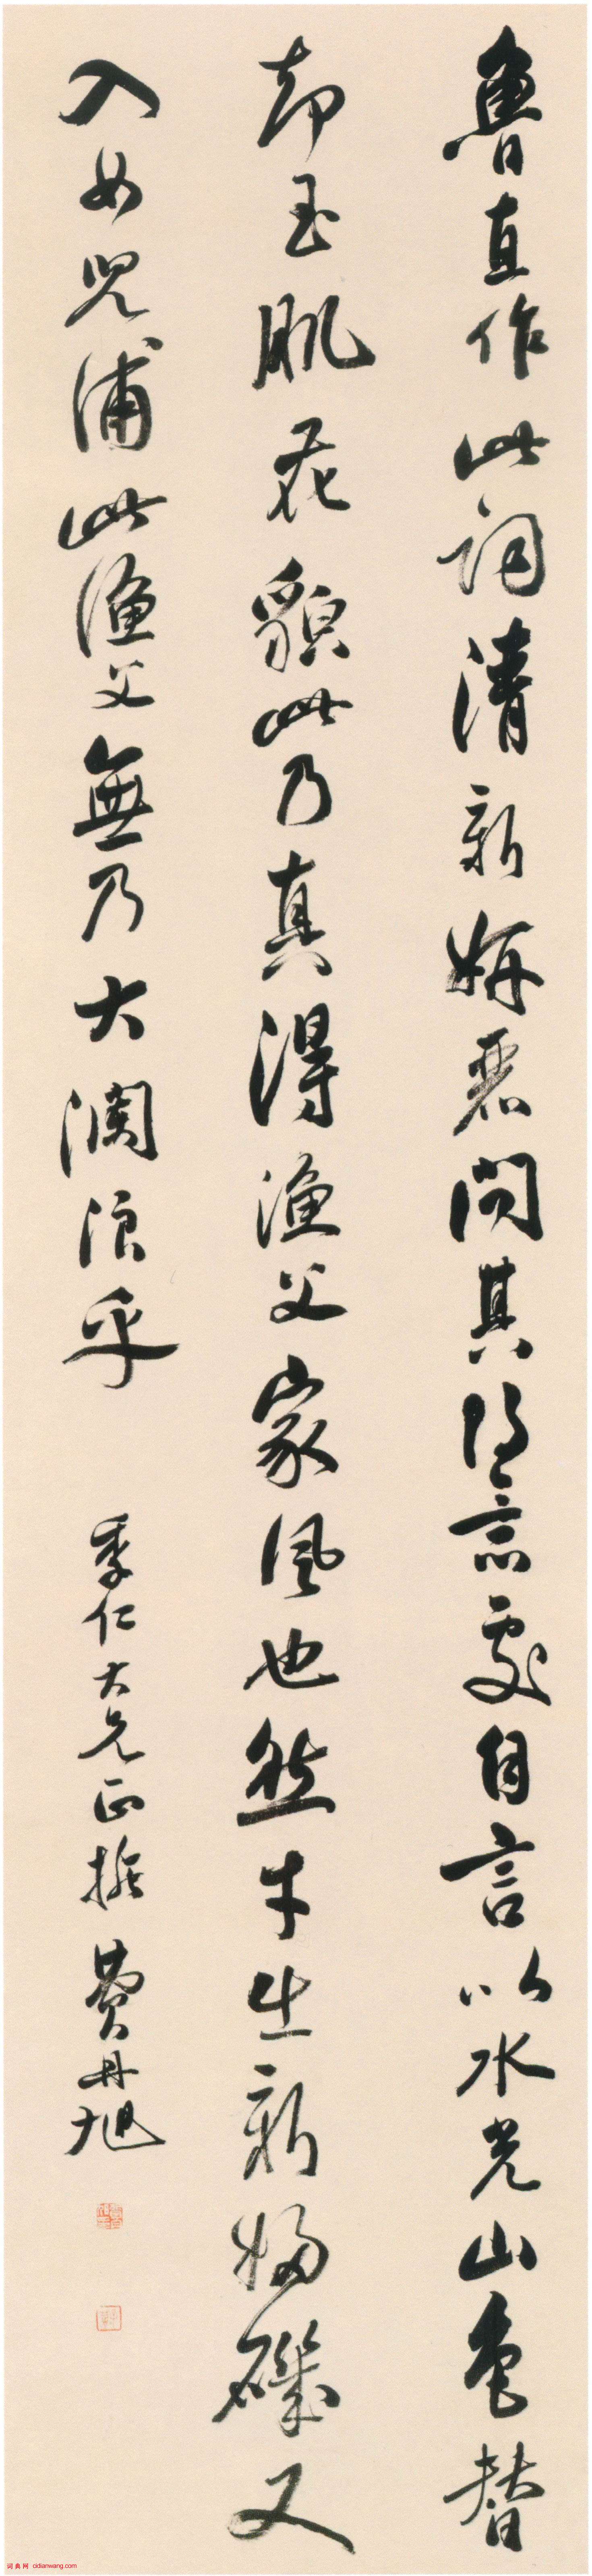 魯直作此詞清新妍麗問其得意處自言以水光山色替
却玉肌花貌此乃真得漁父家風也然才出新婦磯又
入女兒浦此漁父無乃大瀾浪乎
季仁大兄正 費丹旭
词典网 cidianwang.com